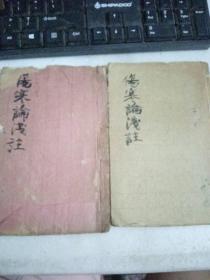 傷寒論淺註
傷寒論淺註